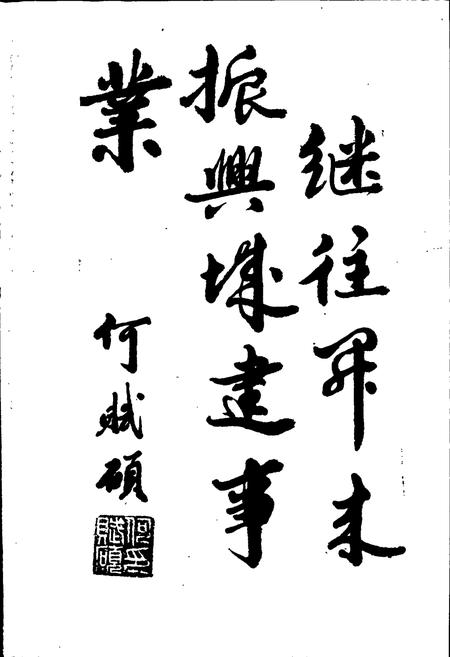 继往开来
振興城建事
業
何賦碩
何賦碩印